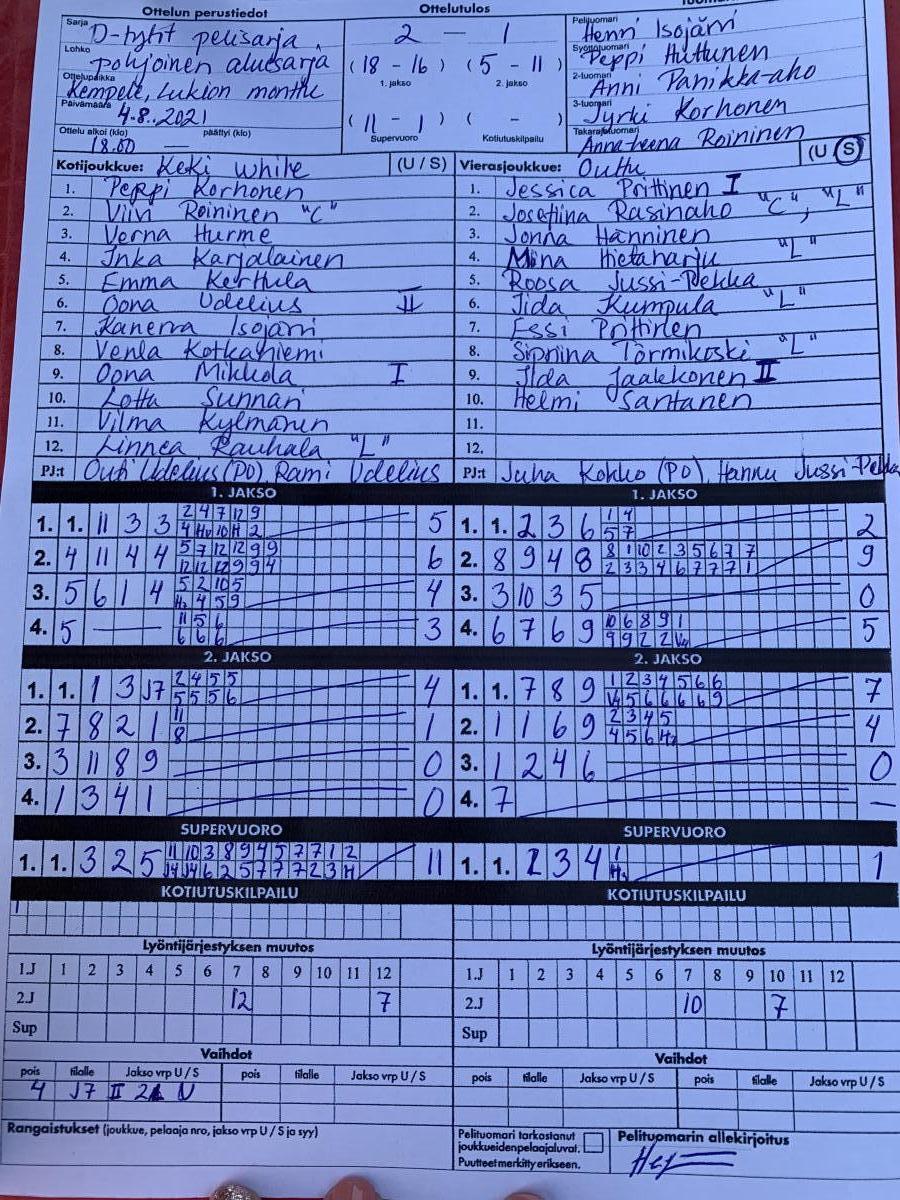 Ottelun perustiedot
Ottelutulos
Sarja D-tytöt pelisarja
Lohko pohjoinen aluesarja
Ottelupaikka Kempele, Lukion monttu
Päivämäärä 4.8.2021
Ottelu alkoi (klo) päättyi (klo)
18.00 —
2 — 1
( 18 - 16 ) ( 5 - 11 )
1. jakso 2. jakso
( 11 - 1 ) ( - )
Supervuoro Kotiutuskilpailu
Pelituomari Henri Isojärvi
Syöttötuomari Peppi Huttunen
2-tuomari Anni Panikka-aho
3-tuomari Jyrki Korhonen
Takarajatuomari Anna-teena Roininen
Kotijoukkue: Keki white (U / S)
1. Peppi Korhonen
2. Viivi Roininen "C"
3. Verna Hurme
4. Inka Karjalainen
5. Emma Kerttula
6. Oona Udelius II
7. Kanerva Isojärvi
8. Venla Kotkaniemi
9. Oona Mikkola I
10. Lotta Sunnari
11. Vilma Kylmänen
12. Linnea Rauhala "L"
PJ:t Outi Udelius (PO), Rami Udelius
Vierasjoukkue: Outtu (U / S)
1. Jessica Prittinen I
2. Josefiina Rasinaho "C", "L"
3. Jonna Hänninen
4. Miina Hietaharju "L"
5. Roosa Jussi-Pekka
6. Iida Kumpula "L"
7. Essi Prittinen
8. Törmikoski "L"
9. Iida Jaakkonen II
10. Helmi Santanen
11.
12.
PJ:t Juha Kohko (PO), Hannu Jussi-Pekka
1. JAKSO
1. 1. 11 3 3 2 4 7 12 9 5
4 Hv 10 H 2
2. 4 11 4 4 5 7 12 12 9 9 6
12 12 12 9 9 4
3. 5 6 1 4 5 2 10 5 4
H2 4 5 9
4. 5 — 11 5 6 3
6 6 6
1. JAKSO
1. 1. 2 3 6 1 4 2
5 7
2. 8 9 4 8 8 1 10 2 3 5 6 7 7 9
2 3 3 4 6 7 7 7 1
3. 3 10 3 5 0
4. 6 7 6 9 10 6 8 9 1 5
9 9 2 2
2. JAKSO
1. 1. 1 3 J7 2 4 5 5 4
5 5 5 6
2. 7 8 2 1 11 1
8
3. 3 11 8 9 0
4. 1 3 4 1 0
2. JAKSO
1. 1. 7 8 9 1 2 3 4 5 6 6 7
5 6 6 6 6 9
2. 1 1 6 9 2 3 4 5 4
4 5 6
3. 1 2 4 6 0
4. 7 —
SUPERVUORO
1. 1. 3 2 5 11 10 3 8 9 4 5 7 7 1 2 11
J4 J4 6 2 5 7 7 7 2 3 H
SUPERVUORO
1. 1. 2 3 4 1 1
KOTIUTUSKILPAILU
KOTIUTUSKILPAILU
Lyöntijärjestyksen muutos
1.J 1 2 3 4 5 6 7 8 9 10 11 12
2.J 12 7
Sup
Lyöntijärjestyksen muutos
1.J 1 2 3 4 5 6 7 8 9 10 11 12
2.J 10 7
Sup
Vaihdot
pois tilalle Jakso vrp U / S pois tilalle Jakso vrp U / S
4 J7 II
Vaihdot
pois tilalle Jakso vrp U / S pois tilalle Jakso vrp U / S
Rangaistukset (joukkue, pelaaja nro, jakso vrp U / S ja syy)
Pelituomari tarkastanut
joukkueiden pelaajaluvat.
Puutteet merkitty erikseen.
Pelituomarin allekirjoitus